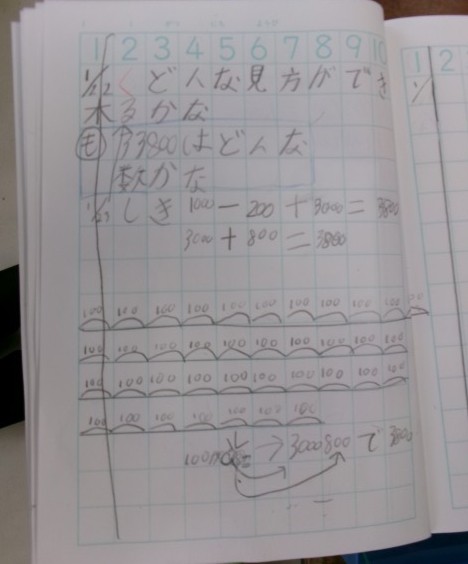 1 2 3 4 5 6 7 8 9 10
1/22 く どんな見方ができ
木 るかな
も 33800はどんな
数かな
1/23 しき 1000－200＋3000＝3800
3000＋800＝3800
100 100 100 100 100 100 100 100 100 100
100 100 100 100 100 100 100 100 100 100
100 100 100 100 100 100 100 100 100 100
100 100 100 100 100 100 100
100が → 3000800で3800
1 2